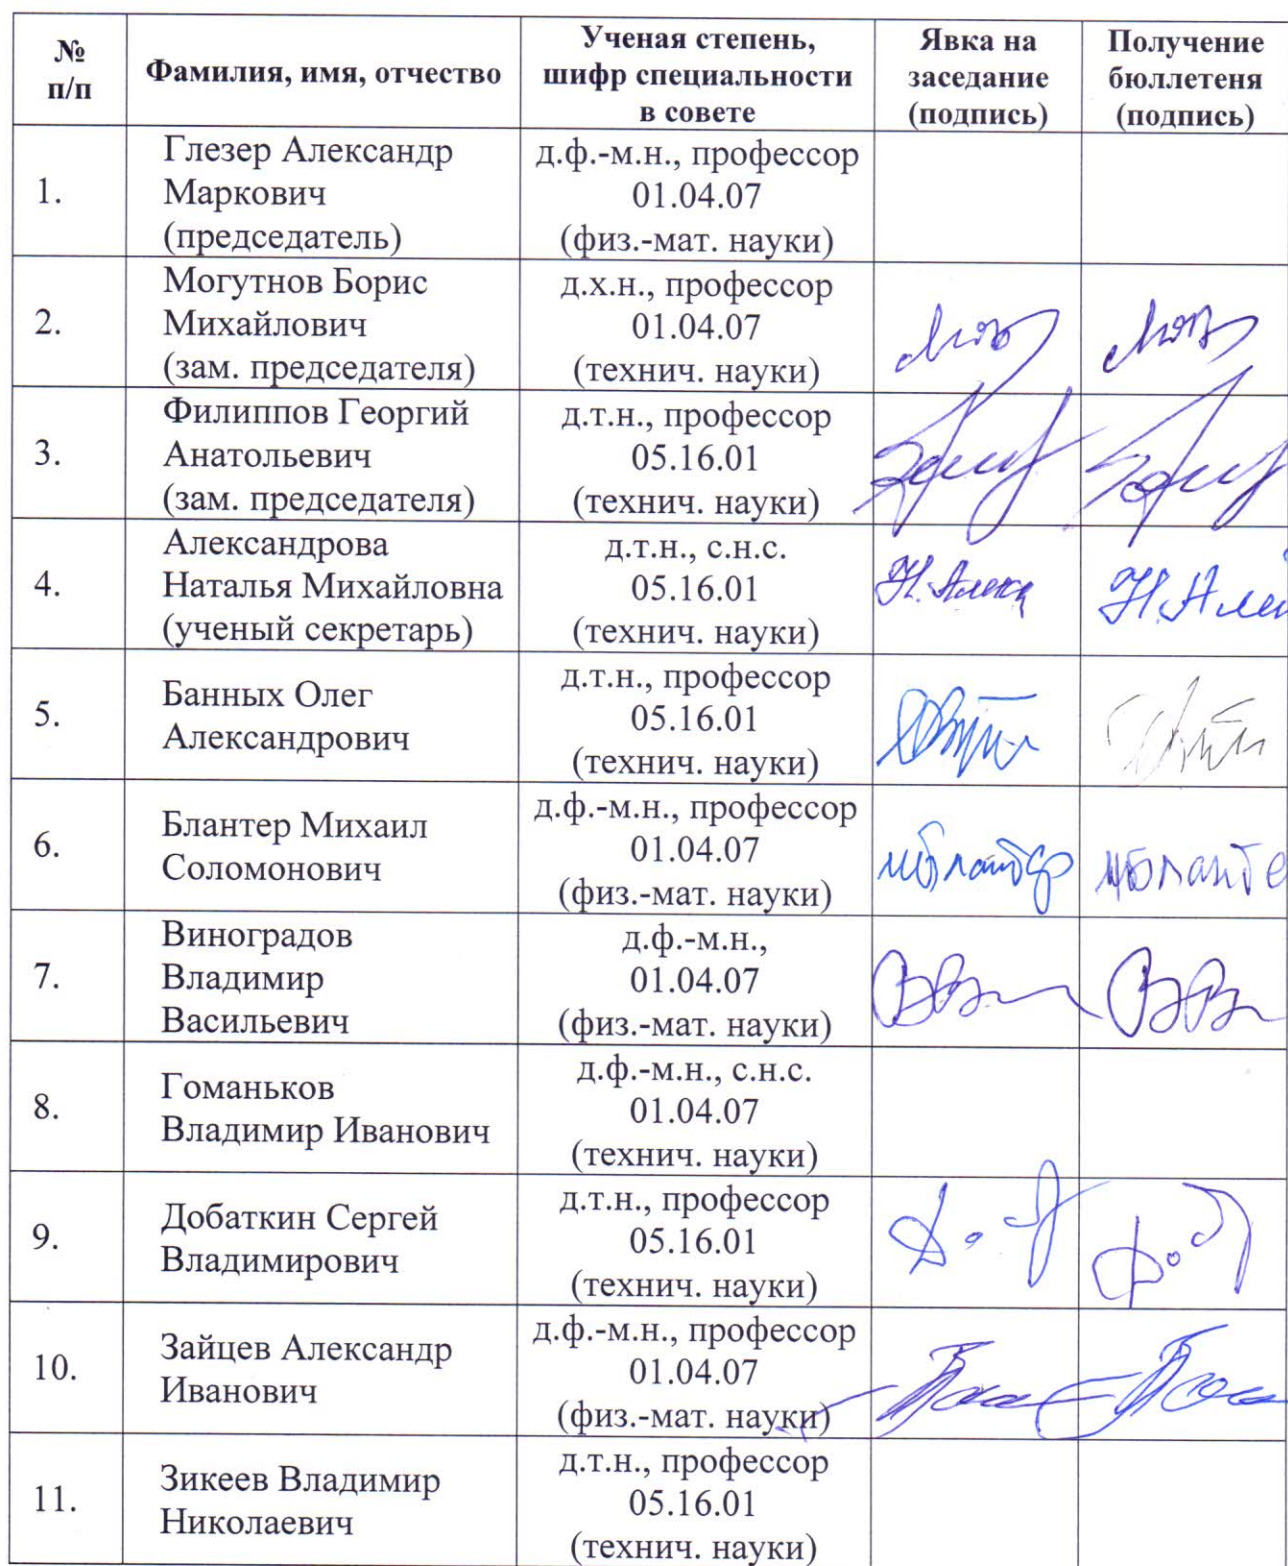 № п/п Фамилия, имя, отчество Ученая степень, шифр специальности в совете Явка на заседание (подпись) Получение бюллетеня (подпись)
1.
Глезер Александр
Маркович
(председатель)
д.ф.-м.н., профессор
01.04.07
(физ.-мат. науки)
2.
Могутнов Борис
Михайлович
(зам. председателя)
д.х.н., профессор
01.04.07
(технич. науки)
3.
Филиппов Георгий
Анатольевич
(зам. председателя)
д.т.н., профессор
05.16.01
(технич. науки)
4.
Александрова
Наталья Михайловна
(ученый секретарь)
д.т.н., с.н.с.
05.16.01
(технич. науки)
5.
Банных Олег
Александрович
д.т.н., профессор
05.16.01
(технич. науки)
6.
Блантер Михаил
Соломонович
д.ф.-м.н., профессор
01.04.07
(физ.-мат. науки)
7.
Виноградов
Владимир
Васильевич
д.ф.-м.н.,
01.04.07
(физ.-мат. науки)
8.
Гоманьков
Владимир Иванович
д.ф.-м.н., с.н.с.
01.04.07
(технич. науки)
9.
Добаткин Сергей
Владимирович
д.т.н., профессор
05.16.01
(технич. науки)
10.
Зайцев Александр
Иванович
д.ф.-м.н., профессор
01.04.07
(физ.-мат. науки)
11.
Зикеев Владимир
Николаевич
д.т.н., профессор
05.16.01
(технич. науки)